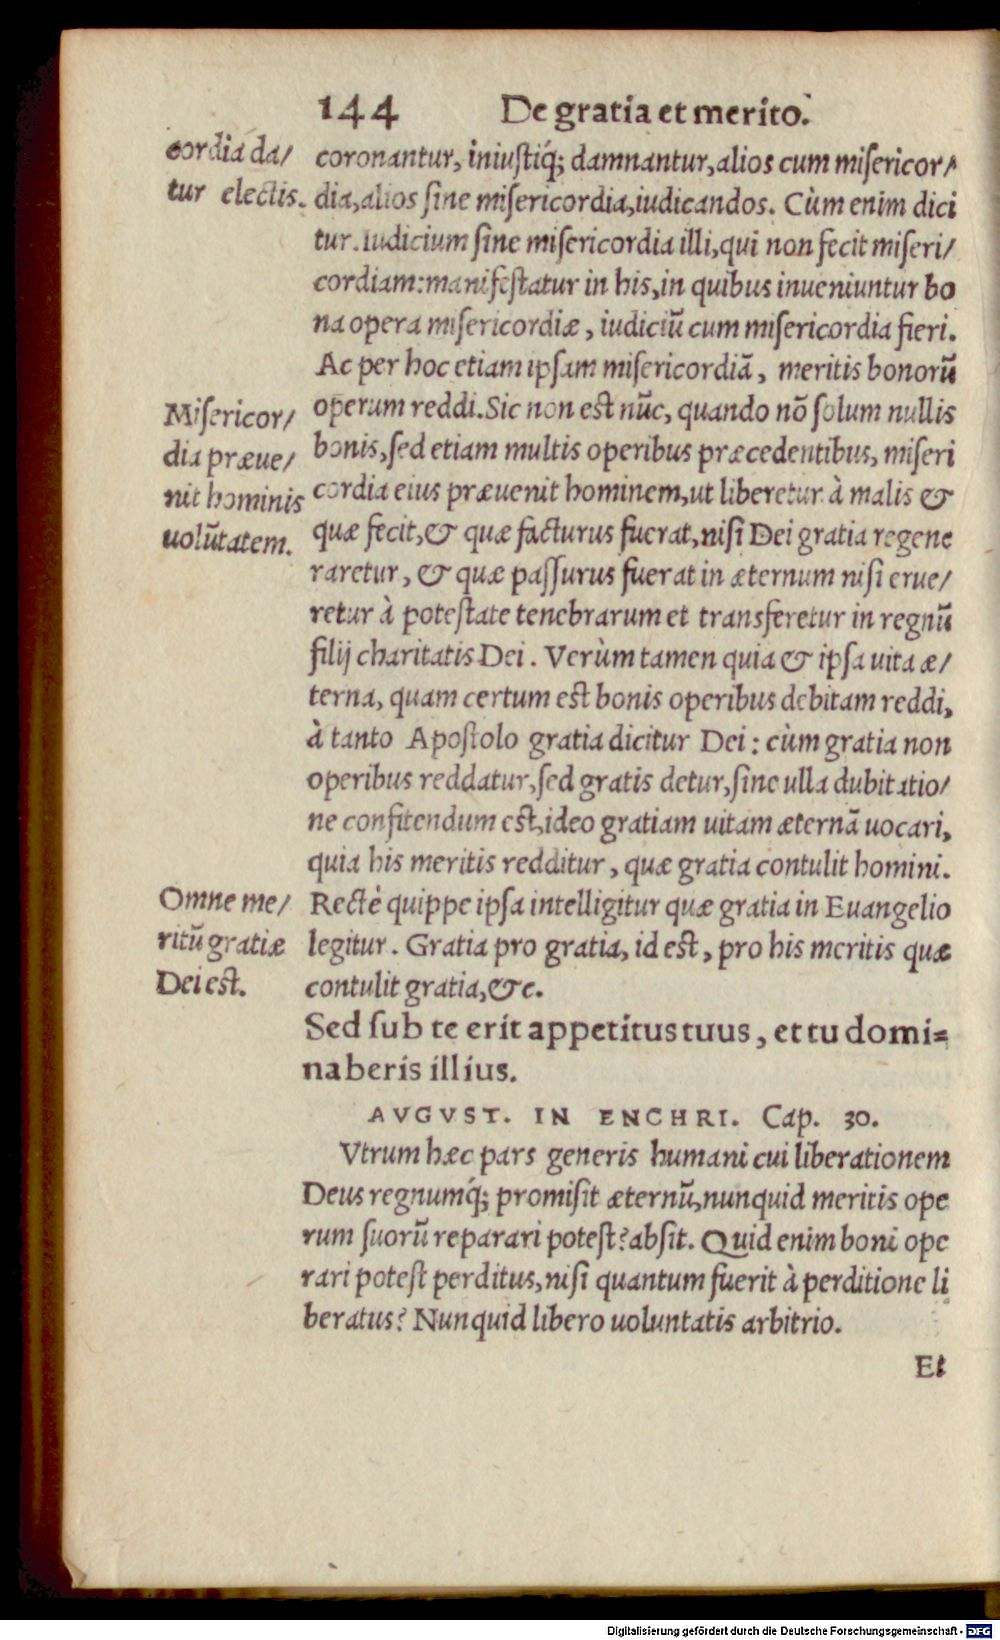 144 De gratia et merito.
cordia da/
tur electis.
coronantur, iniustiq́; damnantur, alios cum misericor/
dia, alios sine misericordia, iudicandos. Cùm enim dici
tur. Iudicium sine misericordia illi, qui non fecit miseri/
cordiam: manifestatur in his, in quibus inueniuntur bo
na opera misericordiæ, iudiciũ cum misericordia fieri.
Ac per hoc etiam ipsam misericordiã, meritis bonorũ
Misericor/
dia præue/
nit hominis
uolũtatem.
operum reddi. Sic non est nũc, quando nõ solum nullis
bonis, sed etiam multis operibus præcedentibus, miseri
cordia eius præuenit hominem, ut liberetur à malis &
quæ fecit, & quæ facturus fuerat, nisi Dei gratia regene
raretur, & quæ passurus fuerat in æternum nisi erue/
retur à potestate tenebrarum et transferetur in regnũ
filij charitatis Dei. Verùm tamen quia & ipsa uita æ/
terna, quam certum est bonis operibus debitam reddi,
à tanto Apostolo gratia dicitur Dei: cùm gratia non
operibus reddatur, sed gratis detur, sine ulla dubitatio/
ne confitendum est, ideo gratiam uitam æternã uocari,
quia his meritis redditur, quæ gratia contulit homini.
Omne me/
ritũ gratiæ
Dei est.
Rectè quippe ipsa intelligitur quæ gratia in Euangelio
legitur. Gratia pro gratia, id est, pro his meritis quæ
contulit gratia, &c.
Sed sub te erit appetitus tuus, et tu domi=
naberis illius.
AVGVST. IN ENCHRI. Cap. 30.
Vtrum hæc pars generis humani cui liberationem
Deus regnumq́; promisit æternũ, nunquid meritis ope
rum suorũ reparari potest? absit. Quid enim boni ope
rari potest perditus, nisi quantum fuerit à perditione li
beratus? Nunquid libero uoluntatis arbitrio.
Et
Digitalisierung gefördert durch die Deutsche Forschungsgemeinschaft - DFG